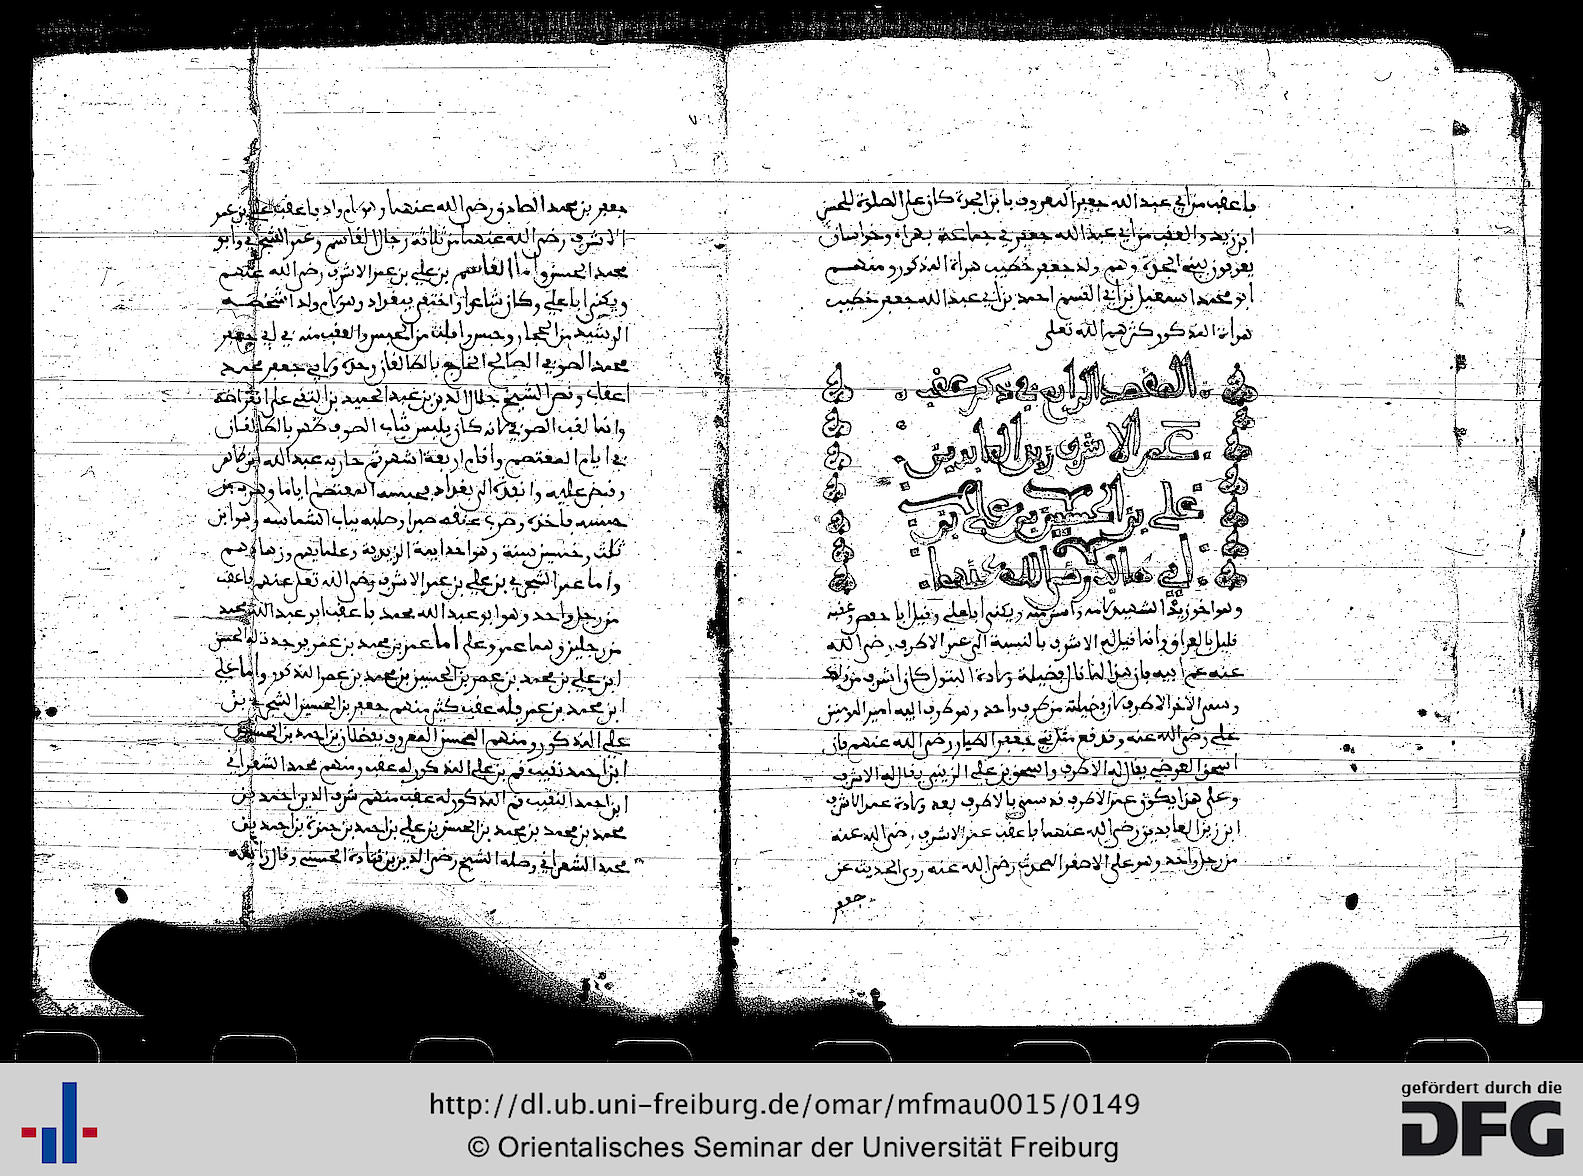 فاعقب من ابي عبد الله جعفر المعروف بابن الجدة كان على الصلوة للحسن
ابن زيد والعقب من ابي عبد الله جعفر في جماعة بهراة وخراسان
يعرفون ببني الجدة وهم ولد جعفر خطيب هراة المذكور ومنهم
ابو محمد اسمعيل بن ابي القسم احمد بن ابي عبد الله جعفر خطيب
هراة المذكور كثرهم الله تعلى
المقصد الرابع في ذكر عقب
عمر الاشرف زين العابدين
علي بن الحسين بن علي بن
ابي طالب رضي الله عنهما
وهو اخو زيد الشهيد لامه واسن منه ويكنى ابا علي وقيل ابا حفص وعقبه
قليل بالعراق وانما قيل له الاشرف بالنسبة الى عمر الاطرف رضي الله
عنه عم ابيه فان هذا لما نال فضيلة ولادة البتول كان اشرف من ذلك
وسمي الاخر الاطرف لان فضيلته من طرف واحد وهو طرف ابيه امير المومنين
علي رضي الله عنه وقد وقع مثل في جعفر الطيار رضي الله عنهم فان
اسحق العرضي يقال له الاطرف واسحق بن علي الزينبي يقال له الاشرف
وعلى هذا يكون عمر الاطرف قد سمي بالاطرف بعد ولادة عمر الاشرف
ابن زين العابدين رضي الله عنهما فاعقب عمر الاشرف رضي الله عنه
من رجل واحد وهو علي الاصغر المحدث رضي الله عنه روى الحديث عن
جعفر
جعفر بن محمد الصادق رضي الله عنهما وهو لام ولد فاعقب علي بن عمر
الاشرف رضي الله عنهما من ثلاثة رجال القاسم وعمر الشجري وابو
محمد الحسن واما القاسم بن علي بن عمر الاشرف رضي الله عنهم
ويكنى ابا علي وكان شاعرا واختفى ببغداد وهو لام ولد اشخصه
الرشيد من الحجاز وحبس وافلت من الحبس والعقب منه في ابي جعفر
محمد الصوفي الصالح الخارج بالطالقان وحده ولابي جعفر محمد
اعقاب ونص الشيخ جلال الدين بن عبد الحميد بن التقي على انقراضه
وانما لقب الصوفي لانه كان يلبس ثياب الصوف ظهر بالطالقان
في ايام المعتصم واقام اربعة اشهر ثم حاربه عبد الله بن طاهر
وقبض عليه وانفذه الى بغداد فحبسه المعتصم اياما وهرب من
حبسه فاخذه وضرب عنقه صبرا وصلبه بباب الشماسه وهو ابن
ثلث وخمسين سنة وهو احد ايمة الزيدية وعلمايهم وزهادهم
واما عمر الشجري بن علي بن عمر الاشرف رضي الله تعلى عنهم فاعقب
من رجل واحد وهو ابو عبد الله محمد فاعقب ابو عبد الله محمد
من رجلين وهما عمر وعلي اما عمر بن محمد بن عمر فوجدت له الحسن
ابن علي بن محمد بن عمر بن الحسين بن محمد بن عمر المذكور واما علي
ابن محمد بن عمر فله عقب كثير منهم جعفر بن الحسين الشجري بن
علي المذكور ومنهم المحسن المعروف بفضلان بن احمد بن الحسين
ابن احمد نقيب قم بن علي المذكور له عقب ومنهم محمد الشعراني
ابن احمد النقيب قم المذكور له عقب منهم شرف الدين احمد بن
محمد بن محمد بن محمد بن الحسن بن علي بن احمد بن حمزة بن احمد بن
محمد الشعراني وصله الشيخ رضي الدين بن قتادة الحسني وقال رايته
http://dl.ub.uni-freiburg.de/omar/mfmau0015/0149
© Orientalisches Seminar der Universität Freiburg
gefördert durch die
DFG